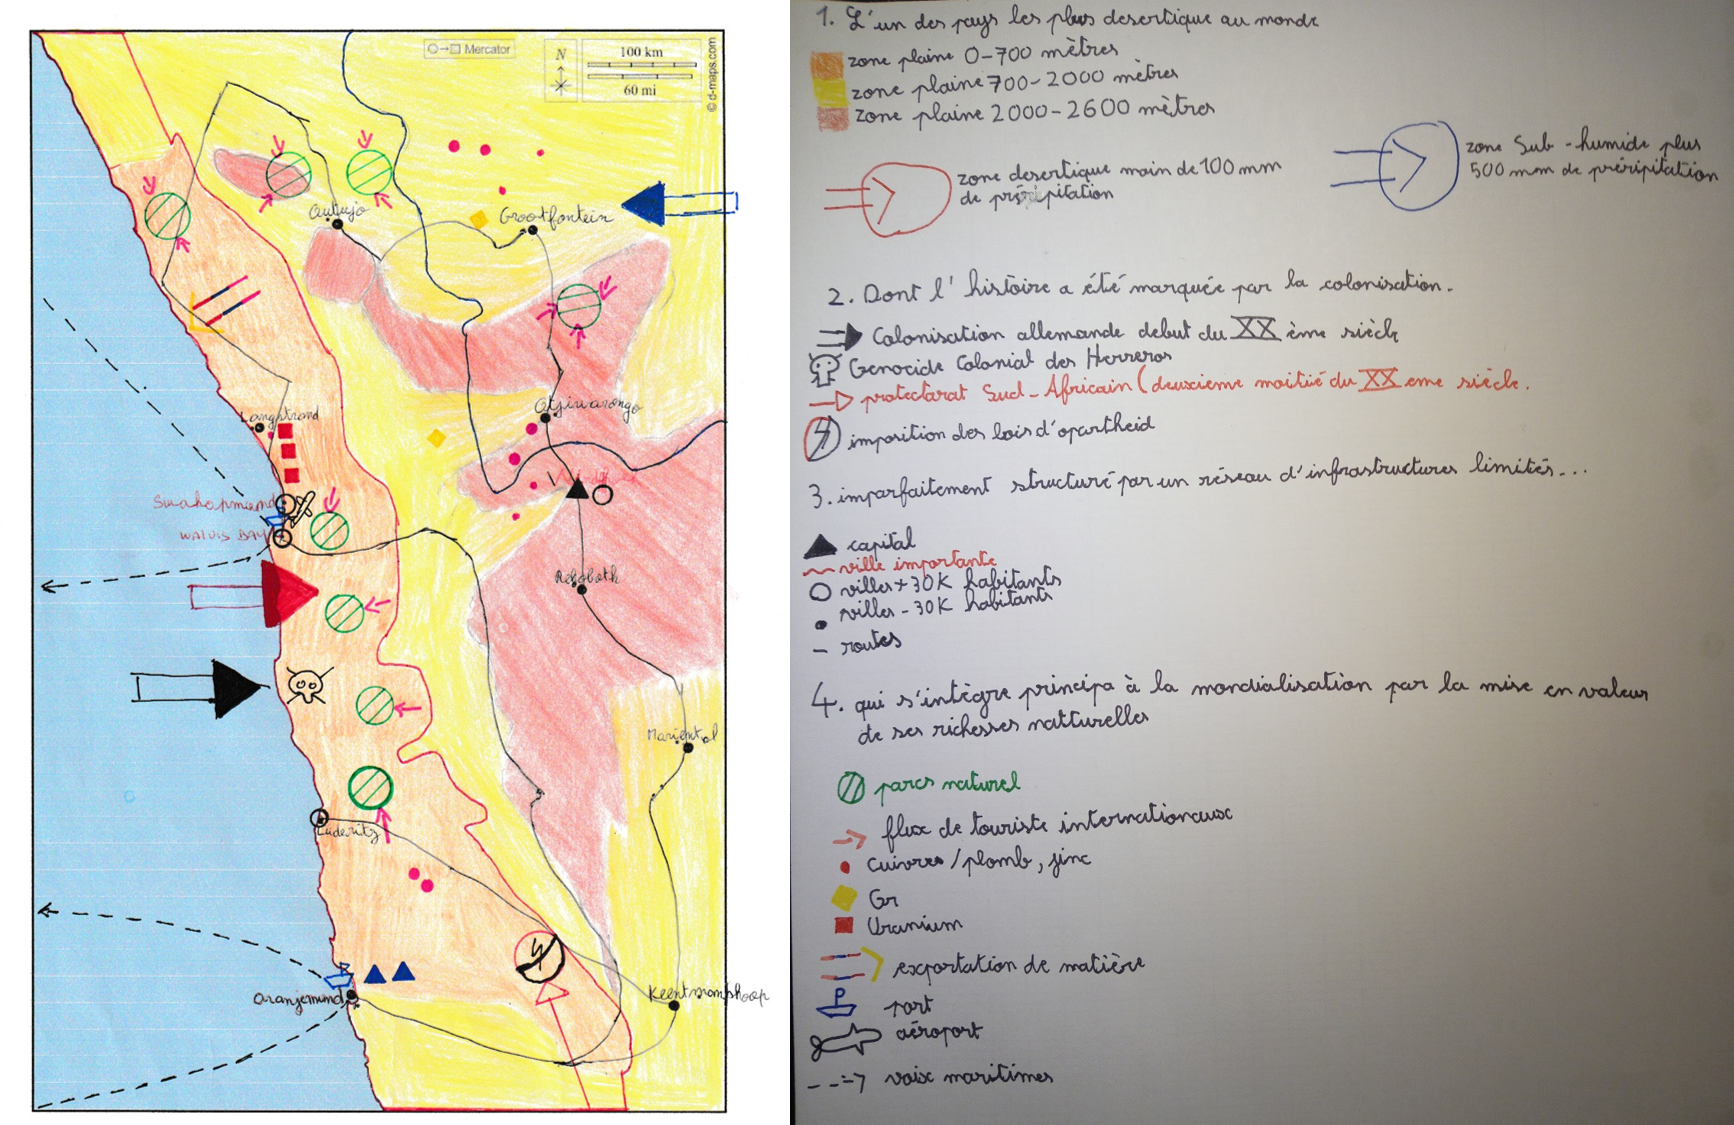 Mercator
N
100 km
60 mi
© d-maps.com
Outujo
Grootfontein
Otjiwarongo
Langstrand
Swakopmund
WALVIS BAY
Reboboth
Mariental
Luderitz
Oranjemund
Keentmanshoop
1. L'un des pays les plus desertique au monde
zone plaine 0-700 mètres
zone plaine 700-2000 mètres
zone plaine 2000-2600 mètres
zone desertique moin de 100 mm
de précipitation
zone Sub-humide plus
500 mm de précipitation
2. Dont l'histoire a été marquée par la colonisation.
Colonisation allemande debut du XX ème siècle
Genocide Colonial des Herreros
protectarat Sud-Africain (deuxieme moitié du XX eme siècle.
imposition des lois d'apartheid
3. imparfaitement structuré par un réseau d'infrastructures limités...
capital
ville importante
villes + 30K habitants
villes - 30K habitants
routes
4. qui s'intègre principa à la mondialisation par la mise en valeur
de ses richesses natturelles
parcs naturel
flux de touriste internationaux
cuivres / plomb, zinc
Or
Uranium
exportation de matière
P port
aéroport
voix maritimes